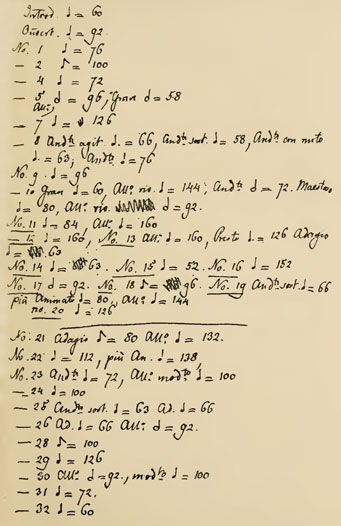 Introd. ♩ = 60
Ouvert. ♩ = 92.
No. 1 ♩ = 76
– 2 ♪ = 100
– 4 ♩ = 72
– 5 ♩ = 96, Grave ♩ = 58
All:
– 7 ♩ = 126
– 8 Andte agit. ♩. = 66, Andte sost. ♩ = 58, Andte con moto
♩. = 63, Andte ♩ = 76
No. 9 ♩ = 96
– 10 Grave ♩ = 60, All: viv. ♩ = 144; Andte ♩ = 72. Maestoso
♩ = 80, All: viv. ♩ = 92.
No. 11 ♩ = 84, All: ♩ = 160
– 12 ♩ = 160, No. 13 All: ♩ = 160, Presto ♩. = 126 Adagio
♩ = 63
No. 14 ♩ = 63. No. 15 ♩ = 52. No. 16 ♩ = 152
No. 17 ♩ = 92. No. 18 ♪ = 96. No. 19 Andte sost. ♩ = 66
più Animato ♩ = 80, All: ♩ = 144
no. 20 ♩ = 126
No. 21 Adagio ♪ = 80 All: ♩ = 132.
No. 22 ♩ = 112, più An. ♩ = 138
No. 23 Andte ♩ = 72, All: modto ♩ = 100
– 24 ♩ = 100
– 25 Andte sost. ♩ = 63 Ad. ♩ = 66
– 26 Ad. ♩ = 66 All: ♩ = 92.
– 28 ♪ = 100
– 29 ♩ = 126
– 30 All: ♩ = 92., modto ♩ = 100
– 31 ♩ = 72.
– 32 ♩ = 60